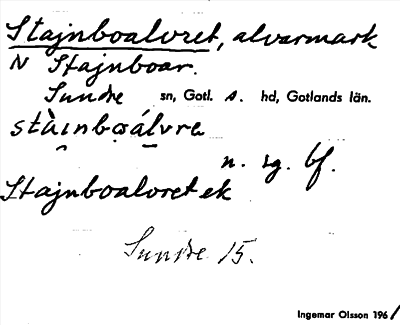 Stajnboalvret, alvarmark
N Stajnboar.
Sundre sn, Gotl. s. hd, Gotlands län.
stàinbǫálvrə
n. sg. bf.
Stajnboalvret ek
Sundre 15.
Ingemar Olsson 1961